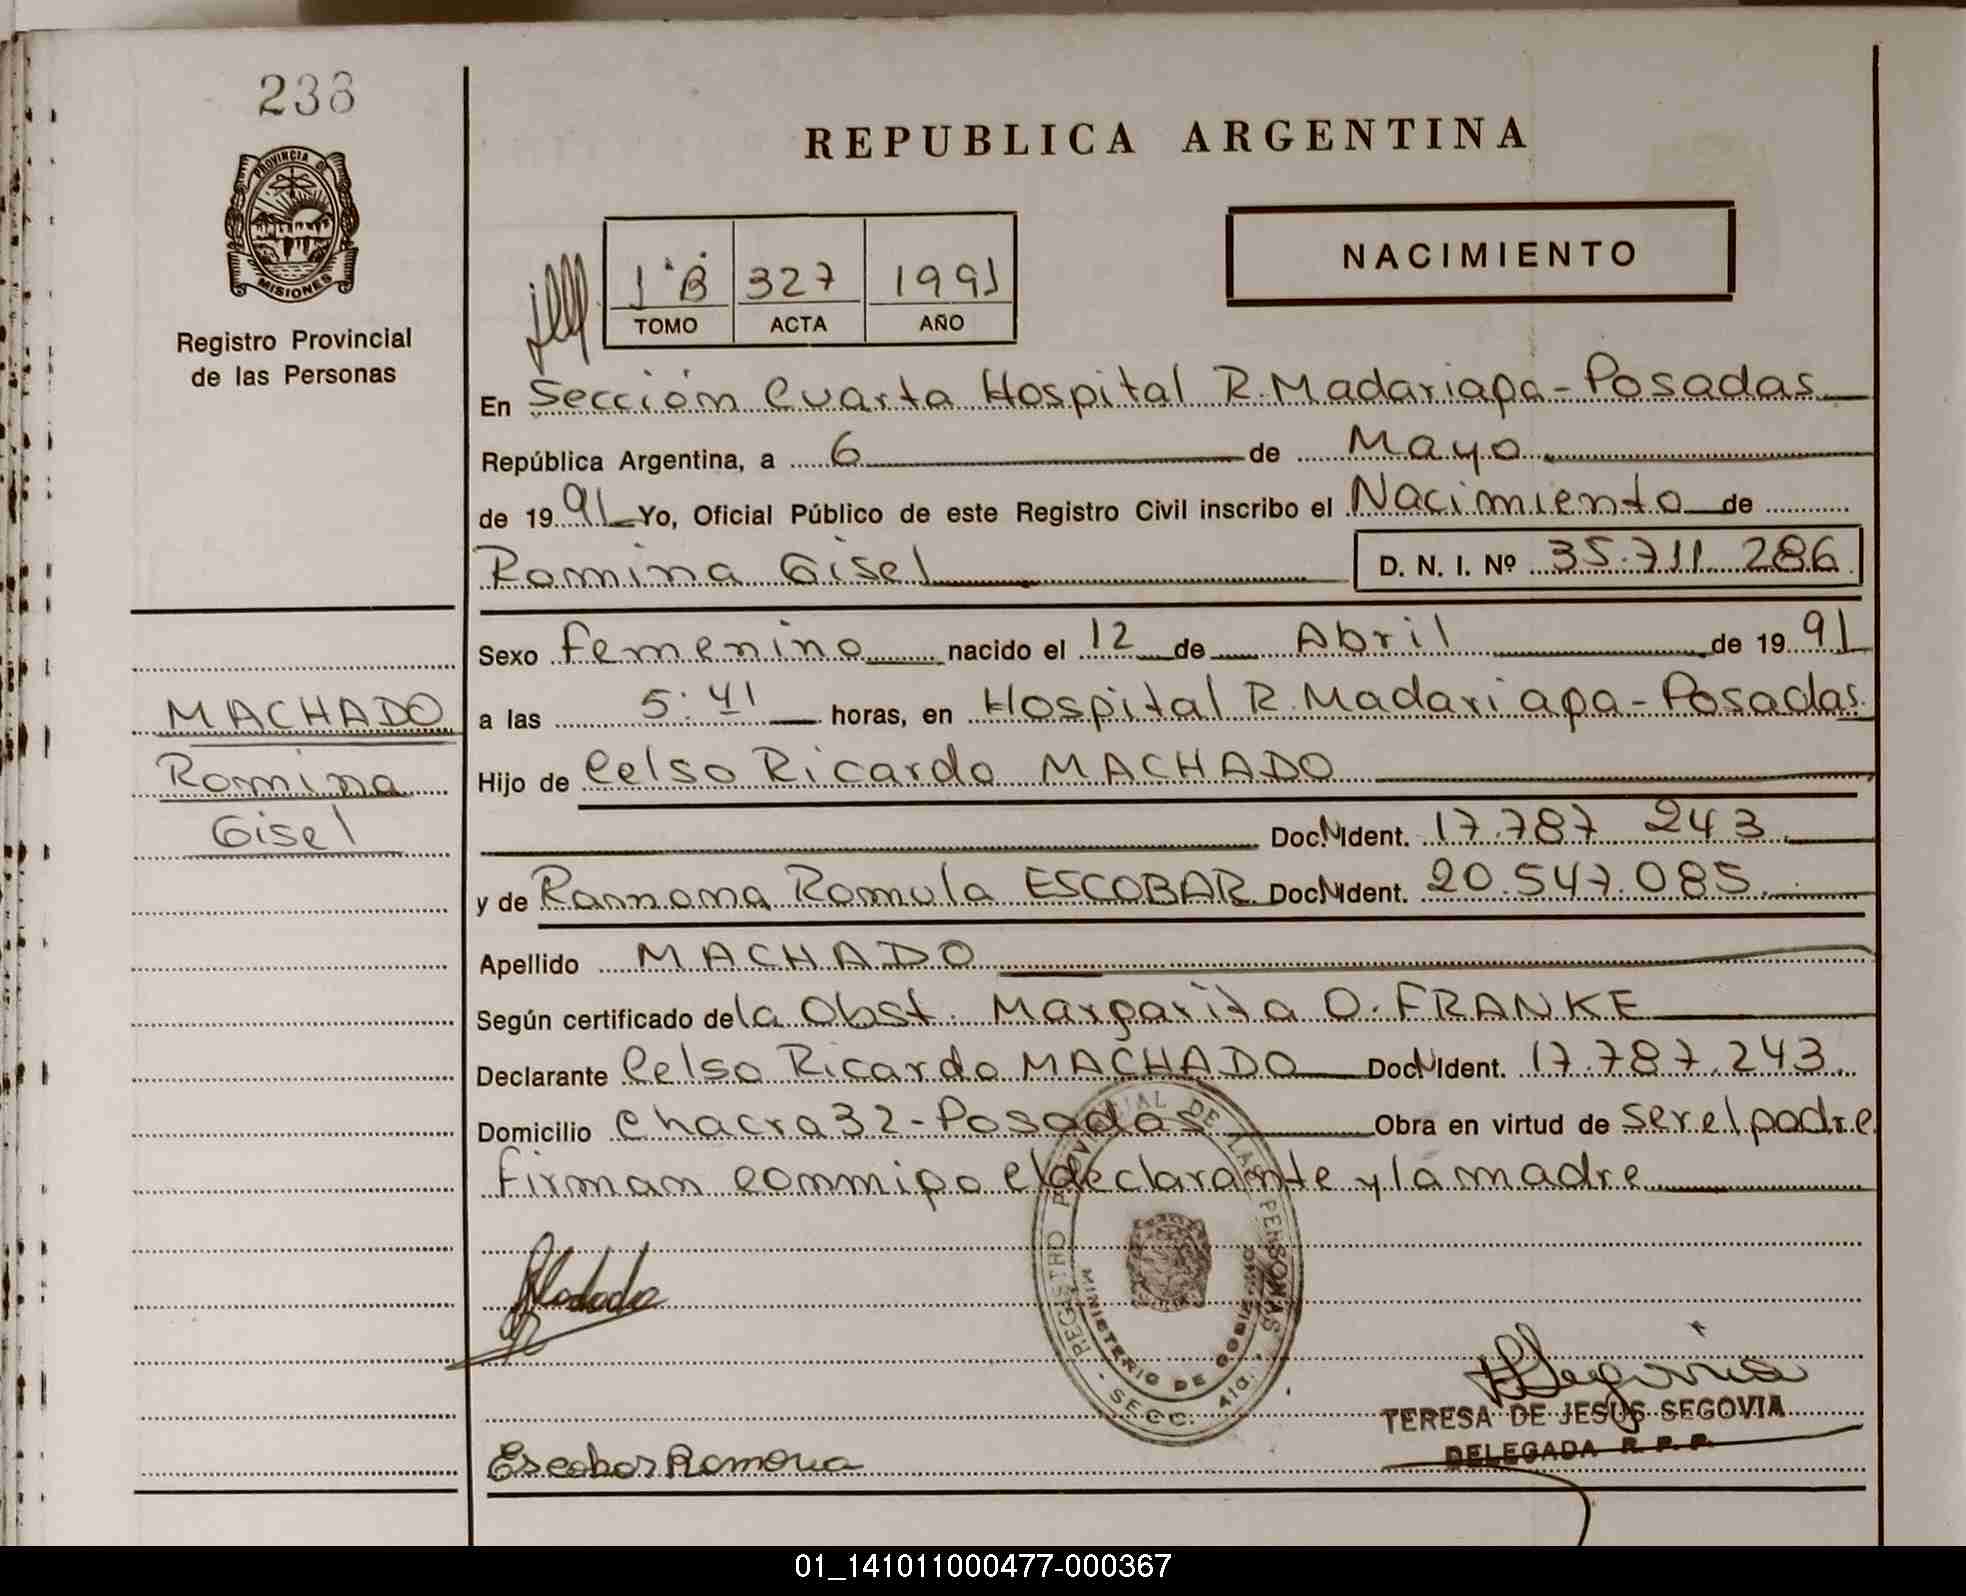 238
PROVINCIA DE
MISIONES
Registro Provincial
de las Personas
REPUBLICA ARGENTINA
NACIMIENTO
1°B 327 1991
TOMO ACTA AÑO
En Sección Cuarta Hospital R. Madariaga - Posadas
República Argentina, a 6 de Mayo
de 1991 Yo, Oficial Público de este Registro Civil inscribo el Nacimiento de
Romina Gisel D. N. I. Nº 35.711.286
Sexo femenino nacido el 12 de Abril de 1991
a las 5:41 horas, en Hospital R. Madariaga - Posadas
Hijo de Celso Ricardo MACHADO
Doc.N Ident. 17.787 243
y de Ramona Romula ESCOBAR Doc N Ident. 20.547.085
Apellido MACHADO
Según certificado de la Obst. Margarita O. FRANKE
Declarante Celso Ricardo MACHADO Doc N Ident. 17.787.243
Domicilio Chacra 32 - Posadas Obra en virtud de ser el padre
firman conmigo el declarante y la madre
MACHADO
Romina
Gisel
REGISTRO PROVINCIAL DE LAS PERSONAS
MINISTERIO DE GOBIERNO
SECC. 4ta.
Machado
Segovia
TERESA DE JESUS SEGOVIA
DELEGADA R. P. P.
Escobar Ramona
01_141011000477-000367